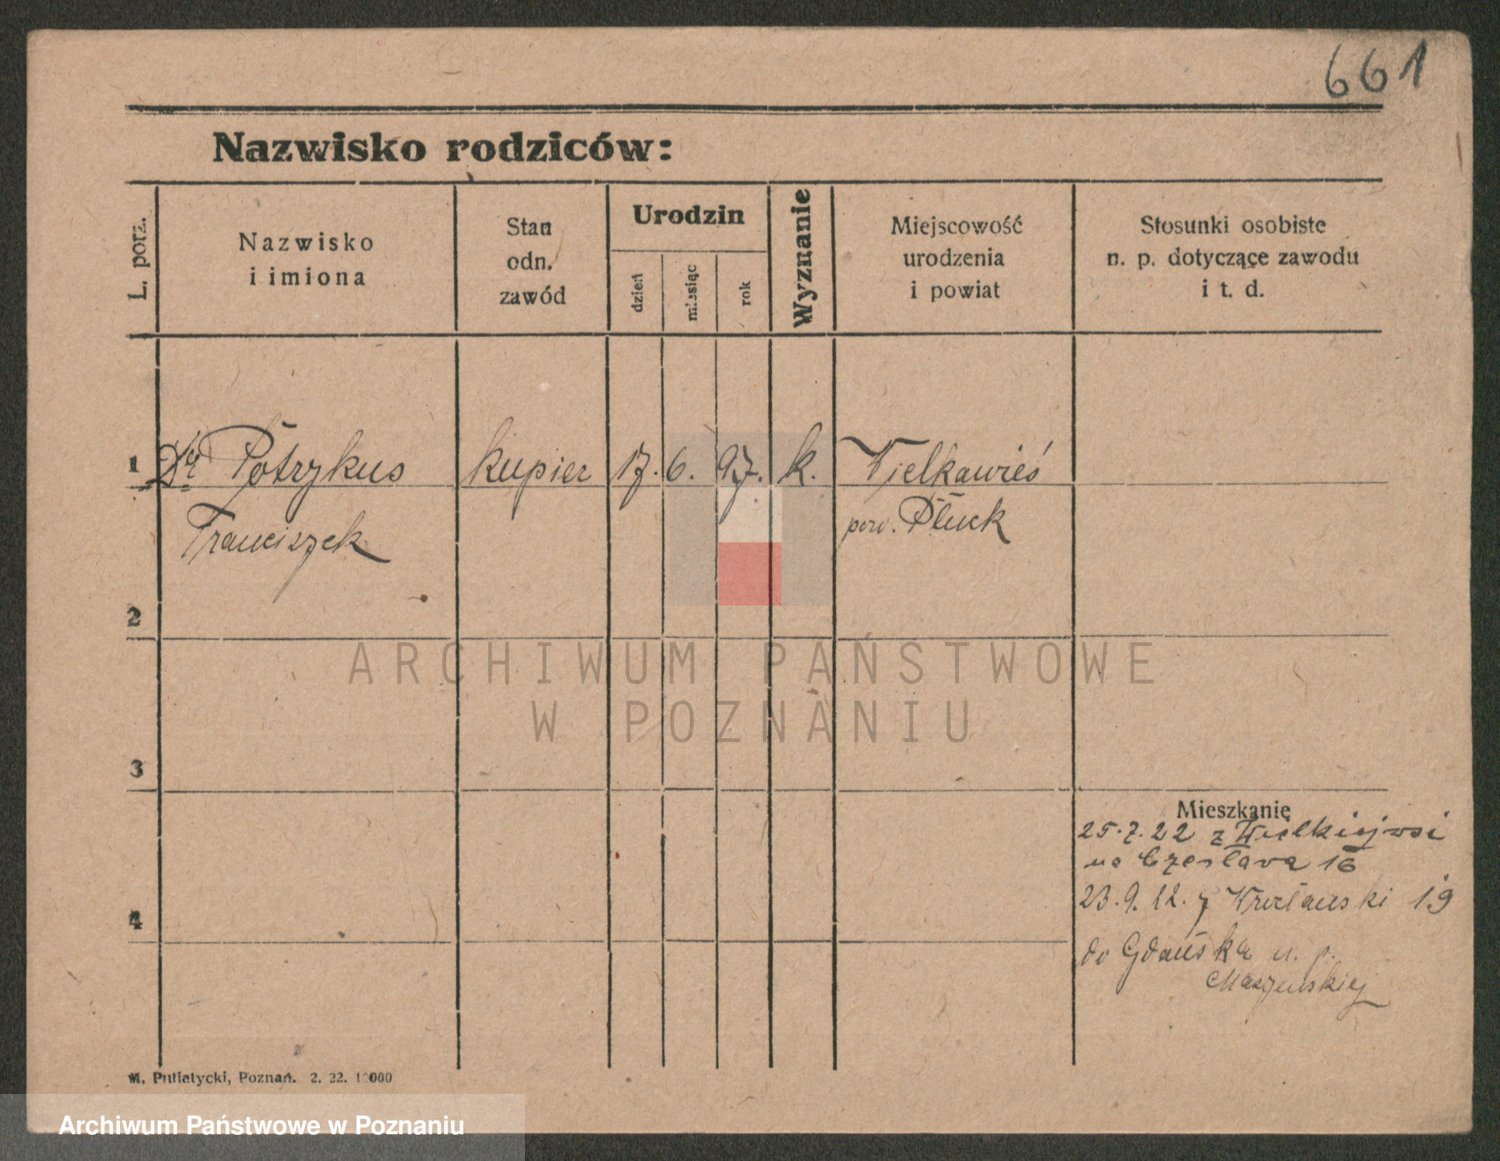 661
Nazwisko rodziców:
L. porz.
Nazwisko
i imiona
Stan
odn.
zawód
Urodzin
dzień
miesiąc
rok
Wyznanie
Miejscowość
urodzenia
i powiat
Stosunki osobiste
n. p. dotyczące zawodu
i t. d.
1 Potrykus kupiec 17. 6. 97. k. Wielkawieś
Franciszek pow. Płuck
2
ARCHIWUM PAŃSTWOWE
W POZNANIU
3
Mieszkanie
25.7.22 z Wielkiejwsi
na Czesława 16
4
23.9.22. Wrocławski 19
do Gdańska u. p.
M. Putiatycki, Poznań. 2. 22. 10000
Archiwum Państwowe w Poznaniu